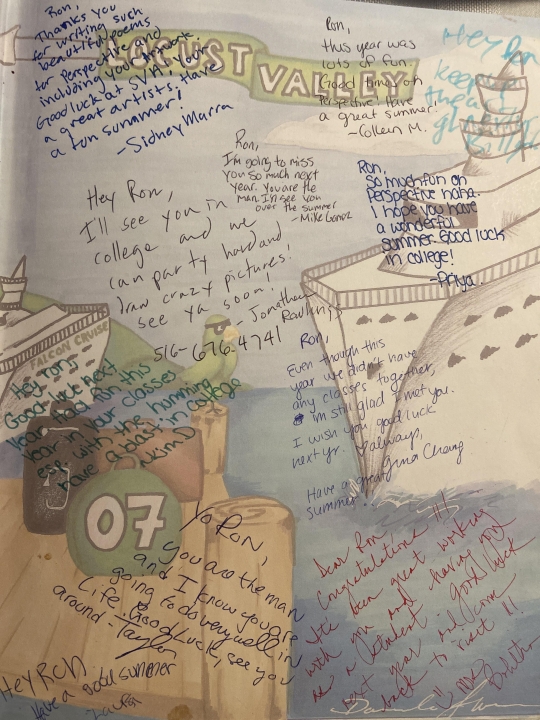 Ron,
Thank you
for writing such
beautiful poems
for Perspective and
including your artwork.
Good luck at SVA, your
a great artist! Have
a fun summer!
-Sidney Marra
LOCUST
VALLEY
Ron,
this year was
lots of fun
Good times on
Perspective. Have
a great summer.
-Colleen M.
Hey Ron
keep
the art
Ron,
I'm going to miss
you so much next
year. You are the
man. I'm see you
over the summer
-Mike Gomez
Ron,
So much fun on
Perspective haha.
I hope you have
a wonderful
summer. Good luck
in college!
-Priya
Hey Ron,
I'll see you in
college and we
can party hard and
draw crazy pictures!
See ya soon!
-Jonathan
Rawlings
516-676-4741
FALCON CRUISE
Hey ron,
Good luck next
year. Had fun this
year in your classes
esp. with the humming
have a blast in college
Ron,
Even though this
year we didn't have
any classes together,
im still glad I met you.
I wish you good luck
next yr. & always,
Gina Chang
Have a great
summer.
07
Yo Ron,
you are the man
and I know you are
going to do very well in
Life. Good Luck, see you
around -Taylor
Dear Ron,
Congratulations!!!
It's been great working
with you and having you
as a student. Good luck
next year and come
back to visit!!
Hey Ron
Have a good summer